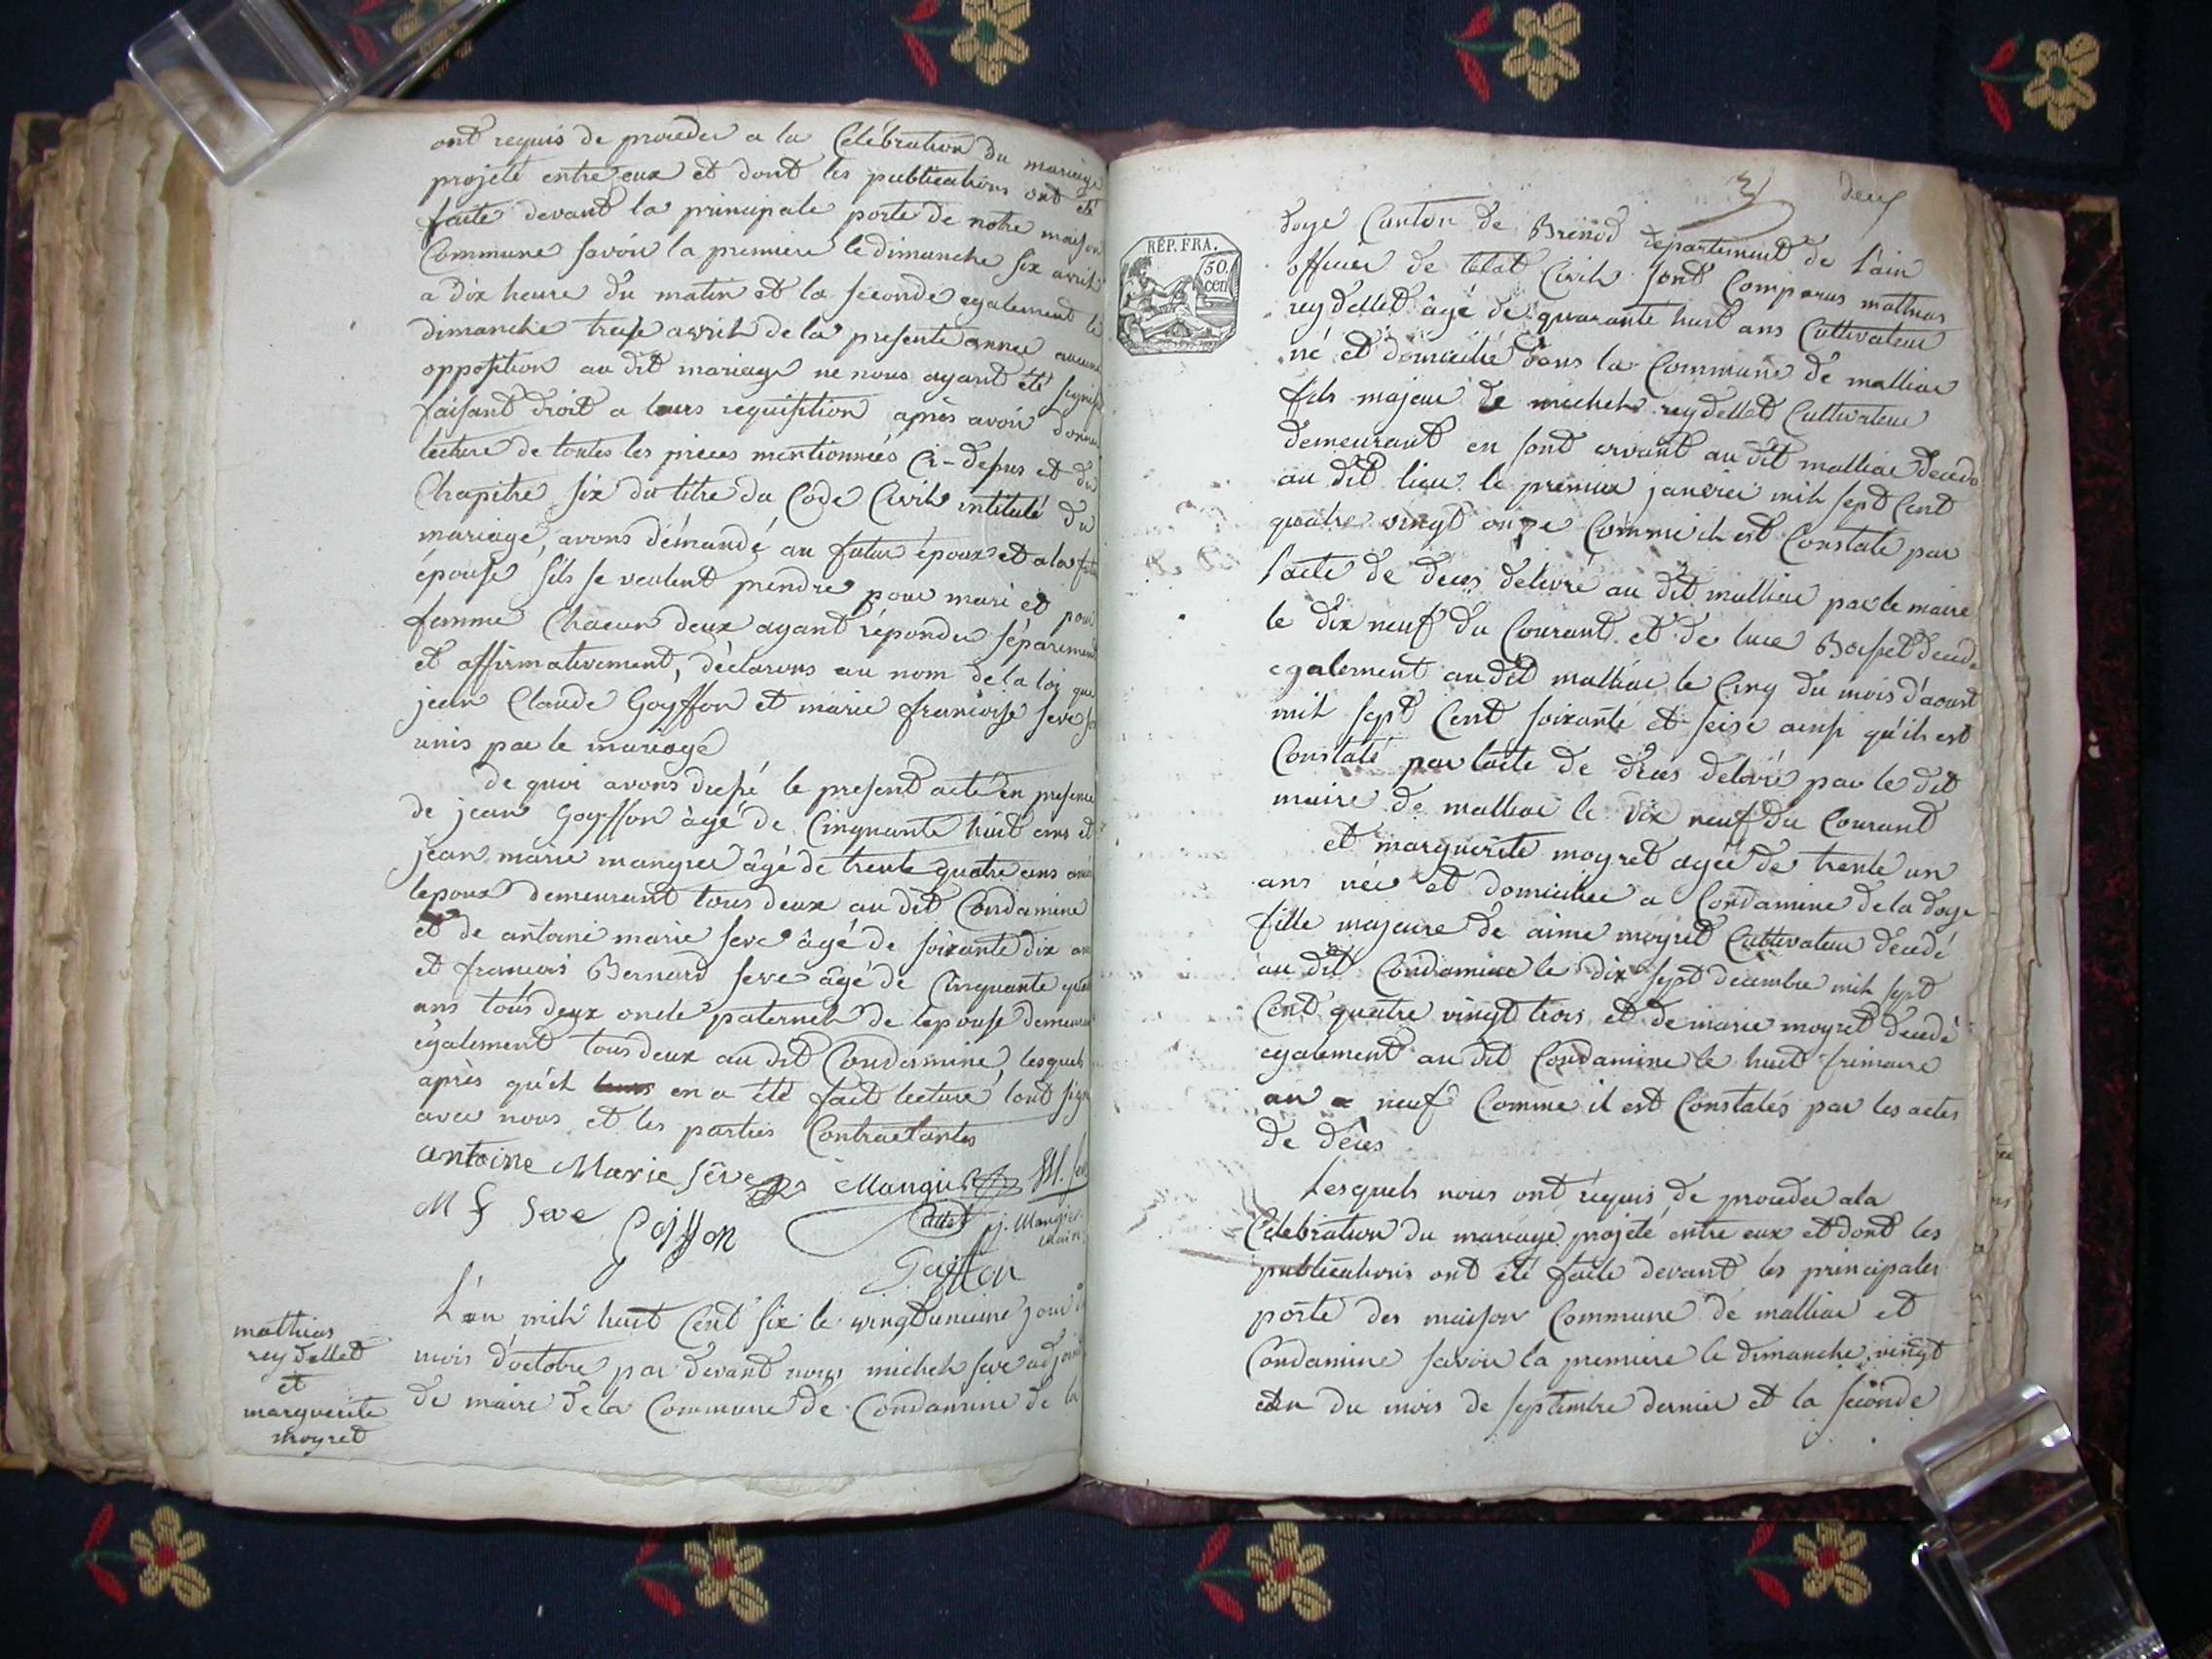 ont requis de proceder a la Celébration du mariage
projeté entre eux et dont les publications ont été
faite devant la principale porte de notre maison
Commune savoir la premiere le dimanche six avril
a dix heure du matin et la seconde egalement le
dimanche treise avril de la presente année aucune
opposition au dit mariage ne nous ayant été signifié
faisant droit a leurs requisition après avoir donné
lecture de toutes les pieces mentionnées Ci-dessus et du
Chapitre six du titre du Code Civil intitulé du
mariage, avons démandé au futur époux et a la futur
épouse s'ils se veulent prendre pour mari et pour
femme Chacun deux ayant répondu séparement
et affirmativement, déclarons au nom de la loi que
jean Claude Goyffon et marie francoise seve so
unis par le mariage
de quoi avons dressé le present acte en presence
de jean Goyffon âgé de Cinquante huit ans et
jean marie mangier âgé de trente quatre ans
lepoux demeurant tous deux au dit Condamine
et de antoine marie seve âgé de soixante dix ans
et francois Bernard seve âgé de Cinquante
ans tous deux oncle paternel de lepouse demeurant
également tous deux au dit Condamine, lesquels
après qu'il en a été fait lecture lont signé
avec nous et les parties Contractantes
antoine Marie Sêve Mangier
M f Seve Goiffon J. Mangier
Goiffon
mathias
reydellet
et
marguerite
moyret
L'an mil huit Cent six le vingtunieme jour du
mois d'octobre par devant nous michel seve adjoint
de maire de la Commune de Condamine de la
3 deux
RÉP. FRA.
50
cen
doye Canton de Brenod departement de l'ain
officier de l'état Civil sont Comparus mathias
reydellet âgé de quarante huit ans Cultivateur
né et domicilié dans la Commune de malliac
fils majeur de michel reydellet Cultivateur
demeurant en sont vivant au dit malliac decedé
au dit lieu le premier janvier mil sept Cent
quatre vingt onze Comme il est Constaté par
l'acte de deces delivré au dit malliac par le maire
le dix neuf du Courant et de luce Bosset decedé
egalement au dit malliac le Cinq du mois d'aoust
mil sept Cent soixante et seise ainsi qu'il est
Constaté par l'acte de deces delivré par le dit
maire de malliac le dix neuf du Courant
et marguerite moyret agée de trente un
ans née et domiciliée a Condamine de la doye
fille majeure de aimé moyret Cultivateur decedé
au dit Condamine le dix sept decembre mil sept
Cent quatre vingt trois et de marie moyret decedé
egalement au dit Condamine le huit frimaire
an neuf Comme il est Constatés par les actes
de déces
Lesquels nous ont réquis de proceder a la
Célébration du mariage projété entre eux et dont les
publications ont été faite devant les principales
porte des maison Commune de malliac et
Condamine savoir la premiere le dimanche vingt
et un du mois de septembre dernier et la seconde